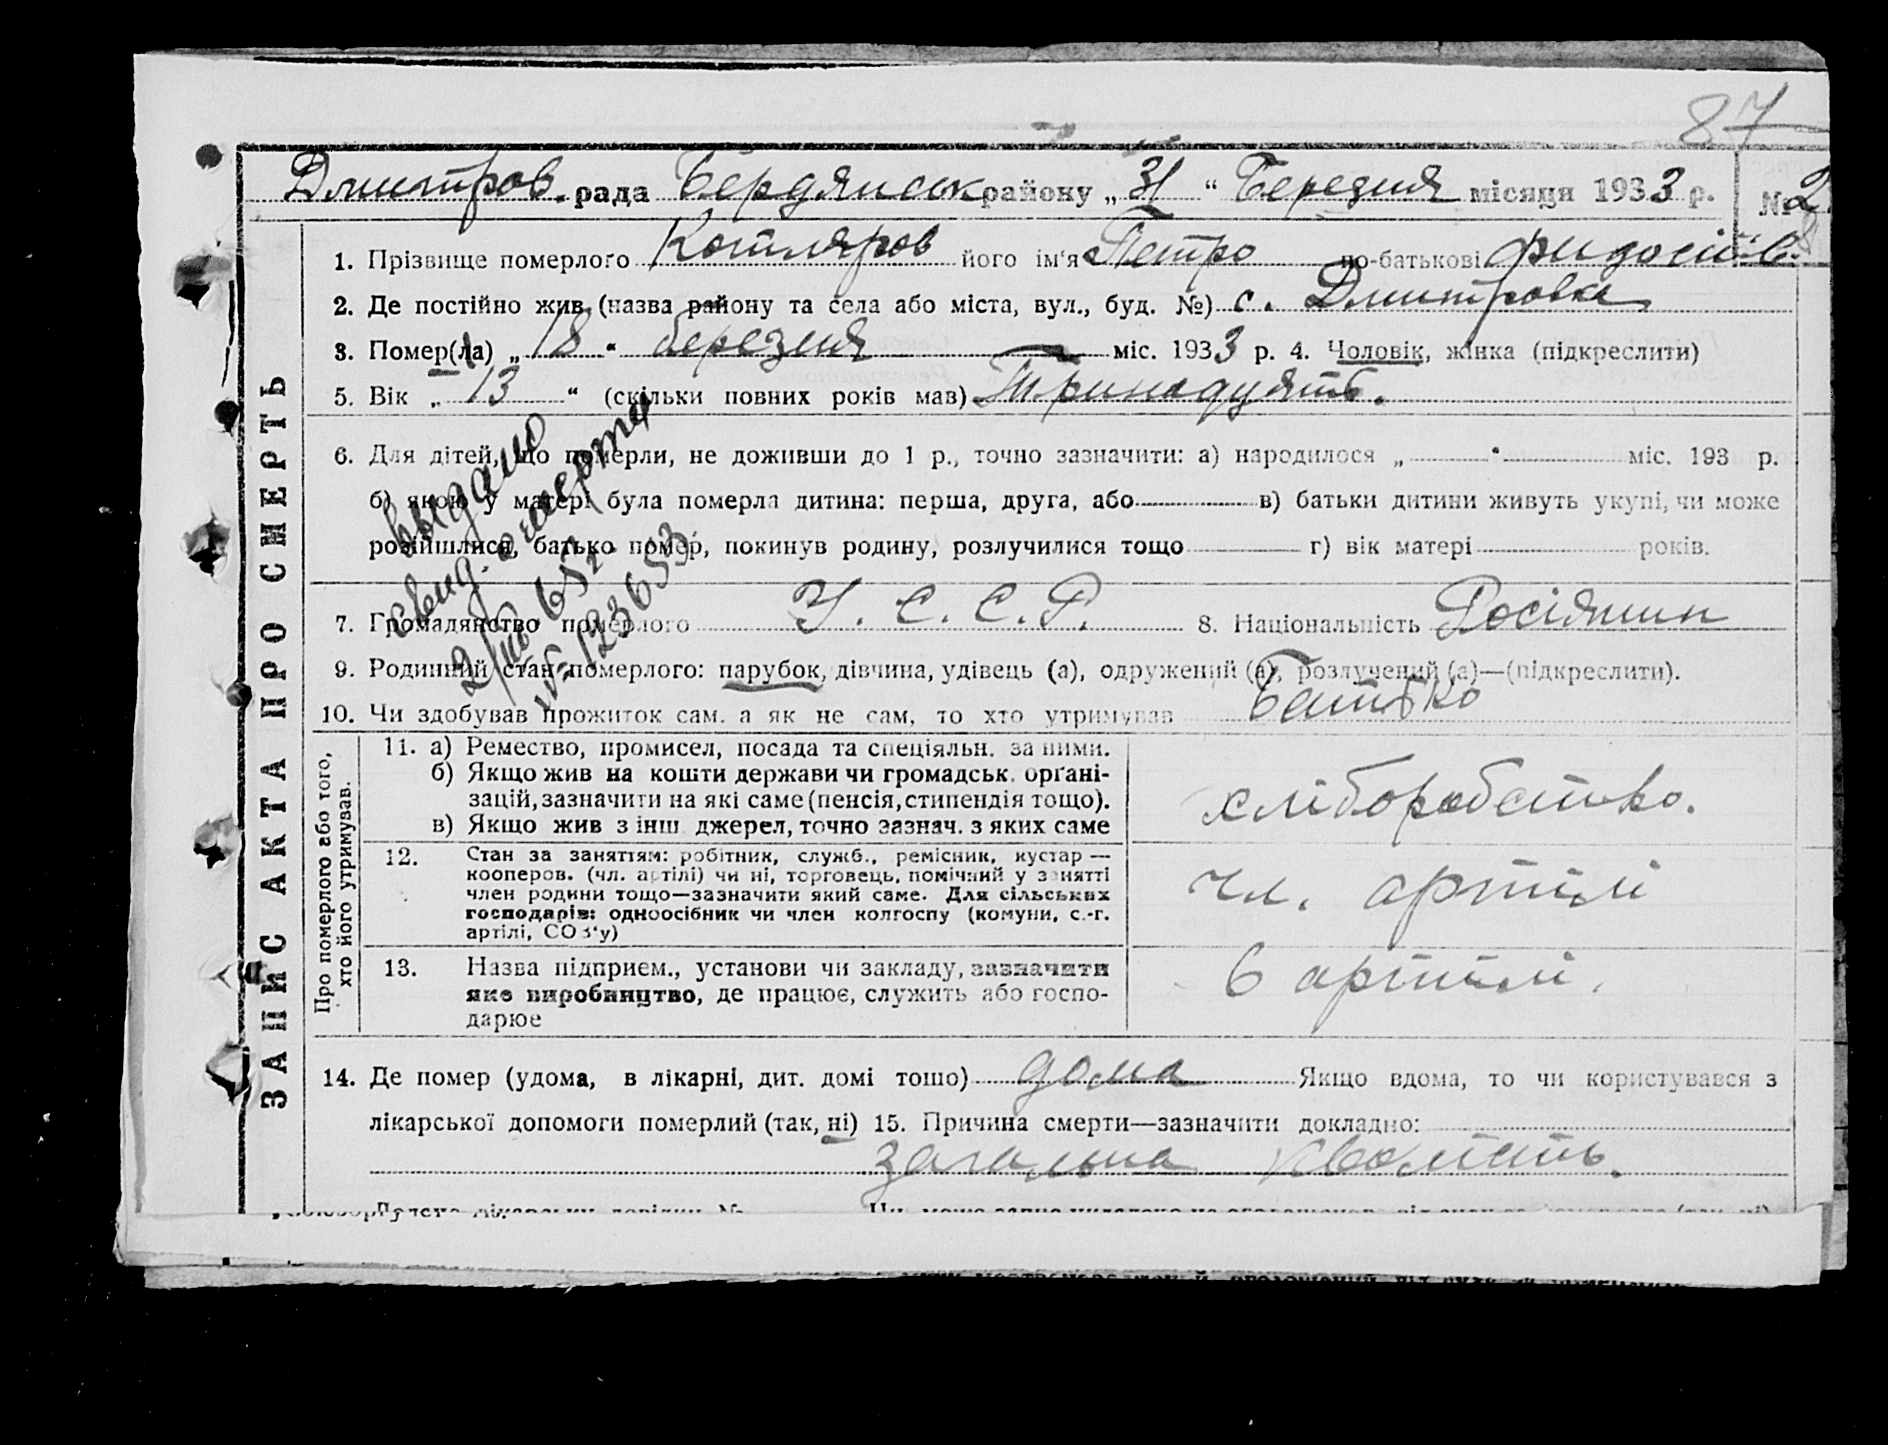 87
Дмитров. рада Бердянськ району „31“ Березня місяця 1933 р. № 28
1. Прізвище померлого Котляров його ім'я Петро по-батькові Фидосіів.
2. Де постійно жив (назва району та села або міста, вул., буд. №) с. Дмитровка
3. Помер(ла) „18“ березня міс. 1933 р. 4. Чоловік, жінка (підкреслити)
5. Вік „13“ (скільки повних років мав) Тринадцять.
6. Для дітей, що померли, не доживши до 1 р., точно зазначити: а) народилося „ “ міс. 193 р.
б) якою у матері була померла дитина: перша, друга, або в) батьки дитини живуть укупі, чи може
розійшлися, батько помер, покинув родину, розлучилися тощо г) вік матері років.
выдано
свид. о смерти
2/ 65г.
№ 123653
7. Громадянство померлого У.С.С.Р. 8. Національність Росіянин
9. Родинний стан померлого: парубок, дівчина, удівець (а), одружений (а), розлучений (а)—(підкреслити).
10. Чи здобував прожиток сам. а як не сам, то хто утримував Батько
ЗАПИС АКТА ПРО СМЕРТЬ
Про померлого або того, хто його утримував.
11. а) Ремество, промисел, посада та спеціяльн. за ними.
б) Якщо жив на кошти держави чи громадськ. орґані-
зацій, зазначити на які саме (пенсія, стипендія тощо).
в) Якщо жив з інш джерел, точно зазнач. з яких саме
хліборобство.
12. Стан за заняттям: робітник, служб., ремісник, кустар —
кооперов. (чл. артілі) чи ні, торговець, помічний у занятті
член родини тощо—зазначити який саме. Для сільських
господарів: одноосібник чи член колгоспу (комуни, с.-г.
артілі, СОЗ'у)
чл. артілі
13. Назва підприєм., установи чи закладу, зазначити
яке виробництво, де працює, служить або госпо-
дарює
в артілі.
14. Де помер (удома, в лікарні, дит. домі тощо) дома Якщо вдома, то чи користувався з
лікарської допомоги померлий (так, ні) 15. Причина смерти—зазначити докладно:
загальна кволість.